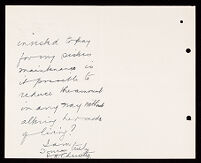 insisted to pay
for my sisters
maintenance is
it possible to
reduce the amount
in any way without
altering her mode
of living?
I am,
Yours truly